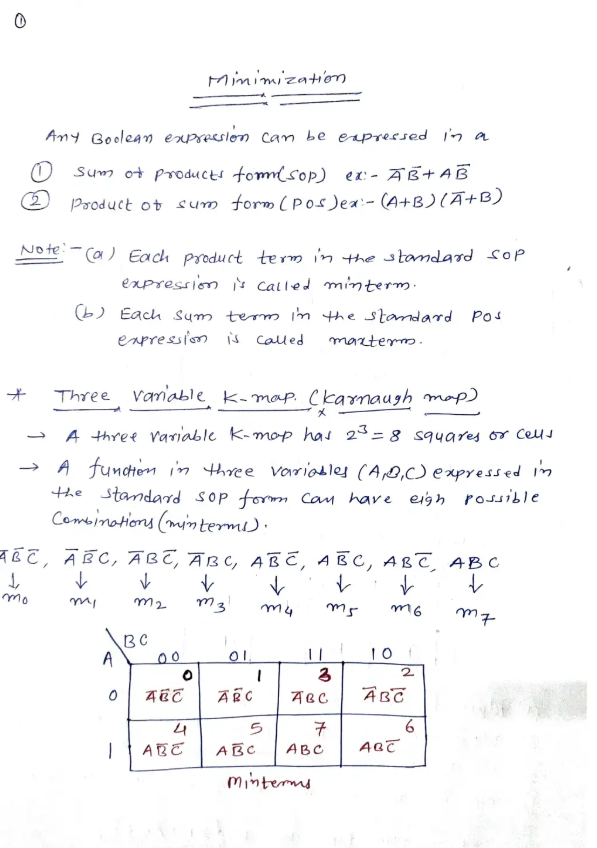 ①
Minimization
Any Boolean expression can be expressed in a
① Sum of products form(SOP) ex:- A̅B̅+AB̅
② Product of sum form (POS) ex:- (A+B)(A̅+B)
Note:- (a) Each product term in the standard SOP
expression is called minterm.
(b) Each sum term in the standard POS
expression is called maxterm.
* Three variable K-map. (Karnaugh map)
→ A three variable K-map has 2³=8 squares or cells
→ A function in three variables (A,B,C) expressed in
the standard SOP form can have eigh possible
Combinations (minterms).
A̅B̅C̅, A̅B̅C, A̅BC̅, A̅BC, AB̅C̅, AB̅C, ABC̅, ABC
↓ ↓ ↓ ↓ ↓ ↓ ↓ ↓
m0 m1 m2 m3 m4 m5 m6 m7
BC
A 00 01 11 10
0 1 3 2
0 A̅B̅C̅ A̅B̅C A̅BC A̅BC̅
4 5 7 6
1 AB̅C̅ AB̅C ABC ABC̅
Minterms